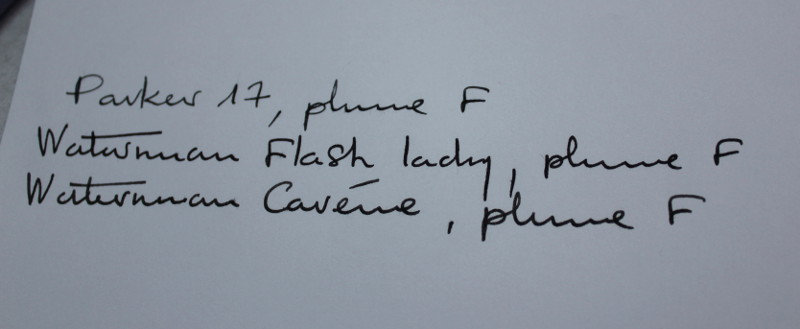 Parker 17, plume F
Waterman Flash lady, plume F
Waterman Carène, plume F